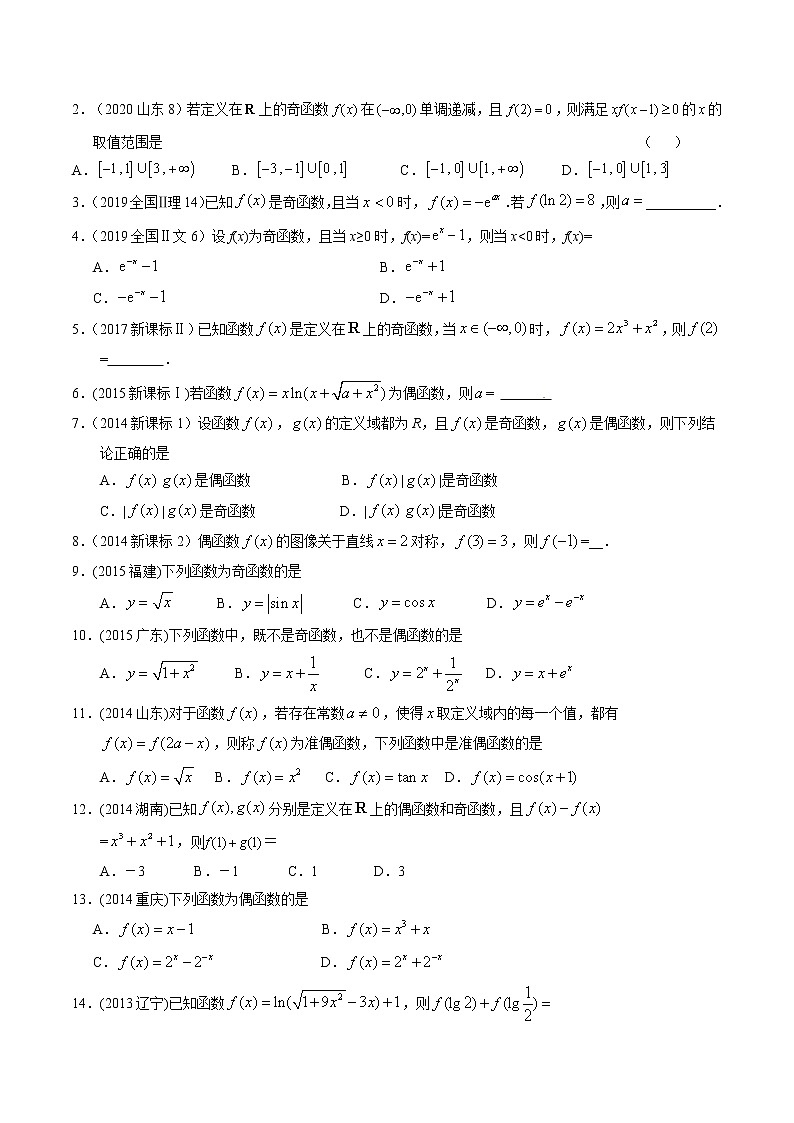 2.（2020 山东 8）若定义在 R 上的奇函数 f(x) 在 (−∞,0) 单调递减，且 f(2) = 0，则满足 xf(x−1) ≥ 0 的 x 的
取值范围是 （ ）
A. [−1,1]∪[3,+∞) B. [−3,−1]∪[0,1] C. [−1,0]∪[1,+∞) D. [−1,0]∪[1,3]
3.（2019 全国Ⅱ理 14）已知 f(x) 是奇函数,且当 x < 0 时， f(x) = −e^{ax} .若 f(ln 2) = 8 ,则 a = __________.
4.（2019 全国Ⅱ文 6）设 f(x)为奇函数，且当 x≥0 时，f(x)= e^x − 1，则当 x<0 时，f(x)=
A. e^{−x} − 1 B. e^{−x} + 1
C. −e^{−x} − 1 D. −e^{−x} + 1
5.（2017 新课标Ⅱ）已知函数 f(x) 是定义在 R 上的奇函数,当 x∈(−∞,0) 时， f(x) = 2x³ + x² ，则 f(2)
=________．
6.(2015 新课标Ⅰ)若函数 f(x) = xln(x+√(a+x²)) 为偶函数，则 a = ______
7.（2014 新课标 1）设函数 f(x)， g(x) 的定义域都为 R，且 f(x) 是奇函数， g(x) 是偶函数，则下列结
论正确的是
A. f(x) g(x) 是偶函数 B. f(x)|g(x)|是奇函数
C.|f(x)|g(x) 是奇函数 D.|f(x) g(x)|是奇函数
8.（2014 新课标 2）偶函数 f(x) 的图像关于直线 x = 2 对称， f(3) = 3，则 f(−1) =__．
9.(2015 福建)下列函数为奇函数的是
A. y = √x B. y = |sin x| C. y = cos x D. y = e^x − e^{−x}
10.(2015 广东)下列函数中，既不是奇函数，也不是偶函数的是
A. y = √(1+x²) B. y = x + 1/x C. y = 2^x + 1/2^x D. y = x + e^x
11.(2014 山东)对于函数 f(x)，若存在常数 a ≠ 0，使得 x 取定义域内的每一个值，都有
f(x) = f(2a − x)，则称 f(x) 为准偶函数，下列函数中是准偶函数的是
A. f(x) = √x B. f(x) = x² C. f(x) = tan x D. f(x) = cos(x+1)
12.(2014 湖南)已知 f(x), g(x) 分别是定义在 R 上的偶函数和奇函数，且 f(x) − f(x)
= x³ + x² + 1，则 f(1) + g(1)＝
A.－3 B.－1 C.1 D.3
13.(2014 重庆)下列函数为偶函数的是
A. f(x) = x − 1 B. f(x) = x³ + x
C. f(x) = 2^x − 2^{−x} D. f(x) = 2^x + 2^{−x}
14.(2013 辽宁)已知函数 f(x) = ln(√(1+9x²) − 3x) + 1，则 f(lg 2) + f(lg 1/2) =